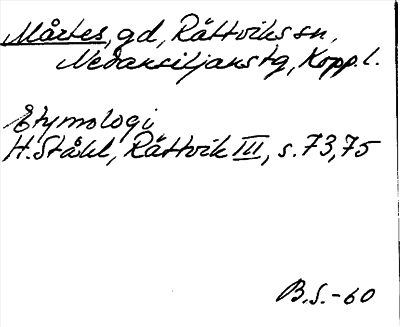 Mårtes, gd, Rättviks sn,
Nedansiljans tg, Kopp. l.
Etymologi
H. Ståhl, Rättvik III, s. 73, 75
B.S. -60